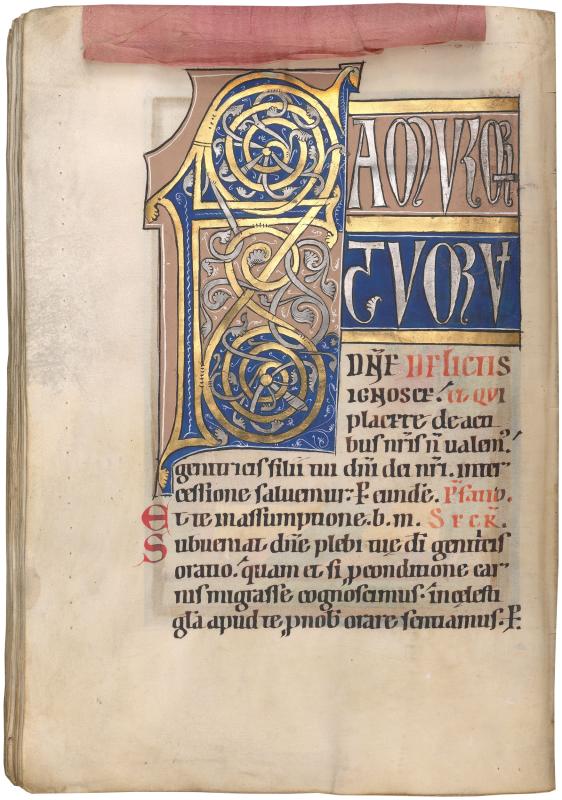 FAMULOR
TUORU
DNE DELICTIS
IGNOSCE. UT QUI
placere de acti
bus nris n ualem.
genitricis filii tui dni dei nri. inter
cessione saluemur. P eunde.
Et te in assumptione. b. m.
Subueniat dne plebi tue di genitricis
oratio. quam et si p conditione car
nis migrasse cognoscimus. in celesti
gla apud te, p nob orare sentiamus. P.